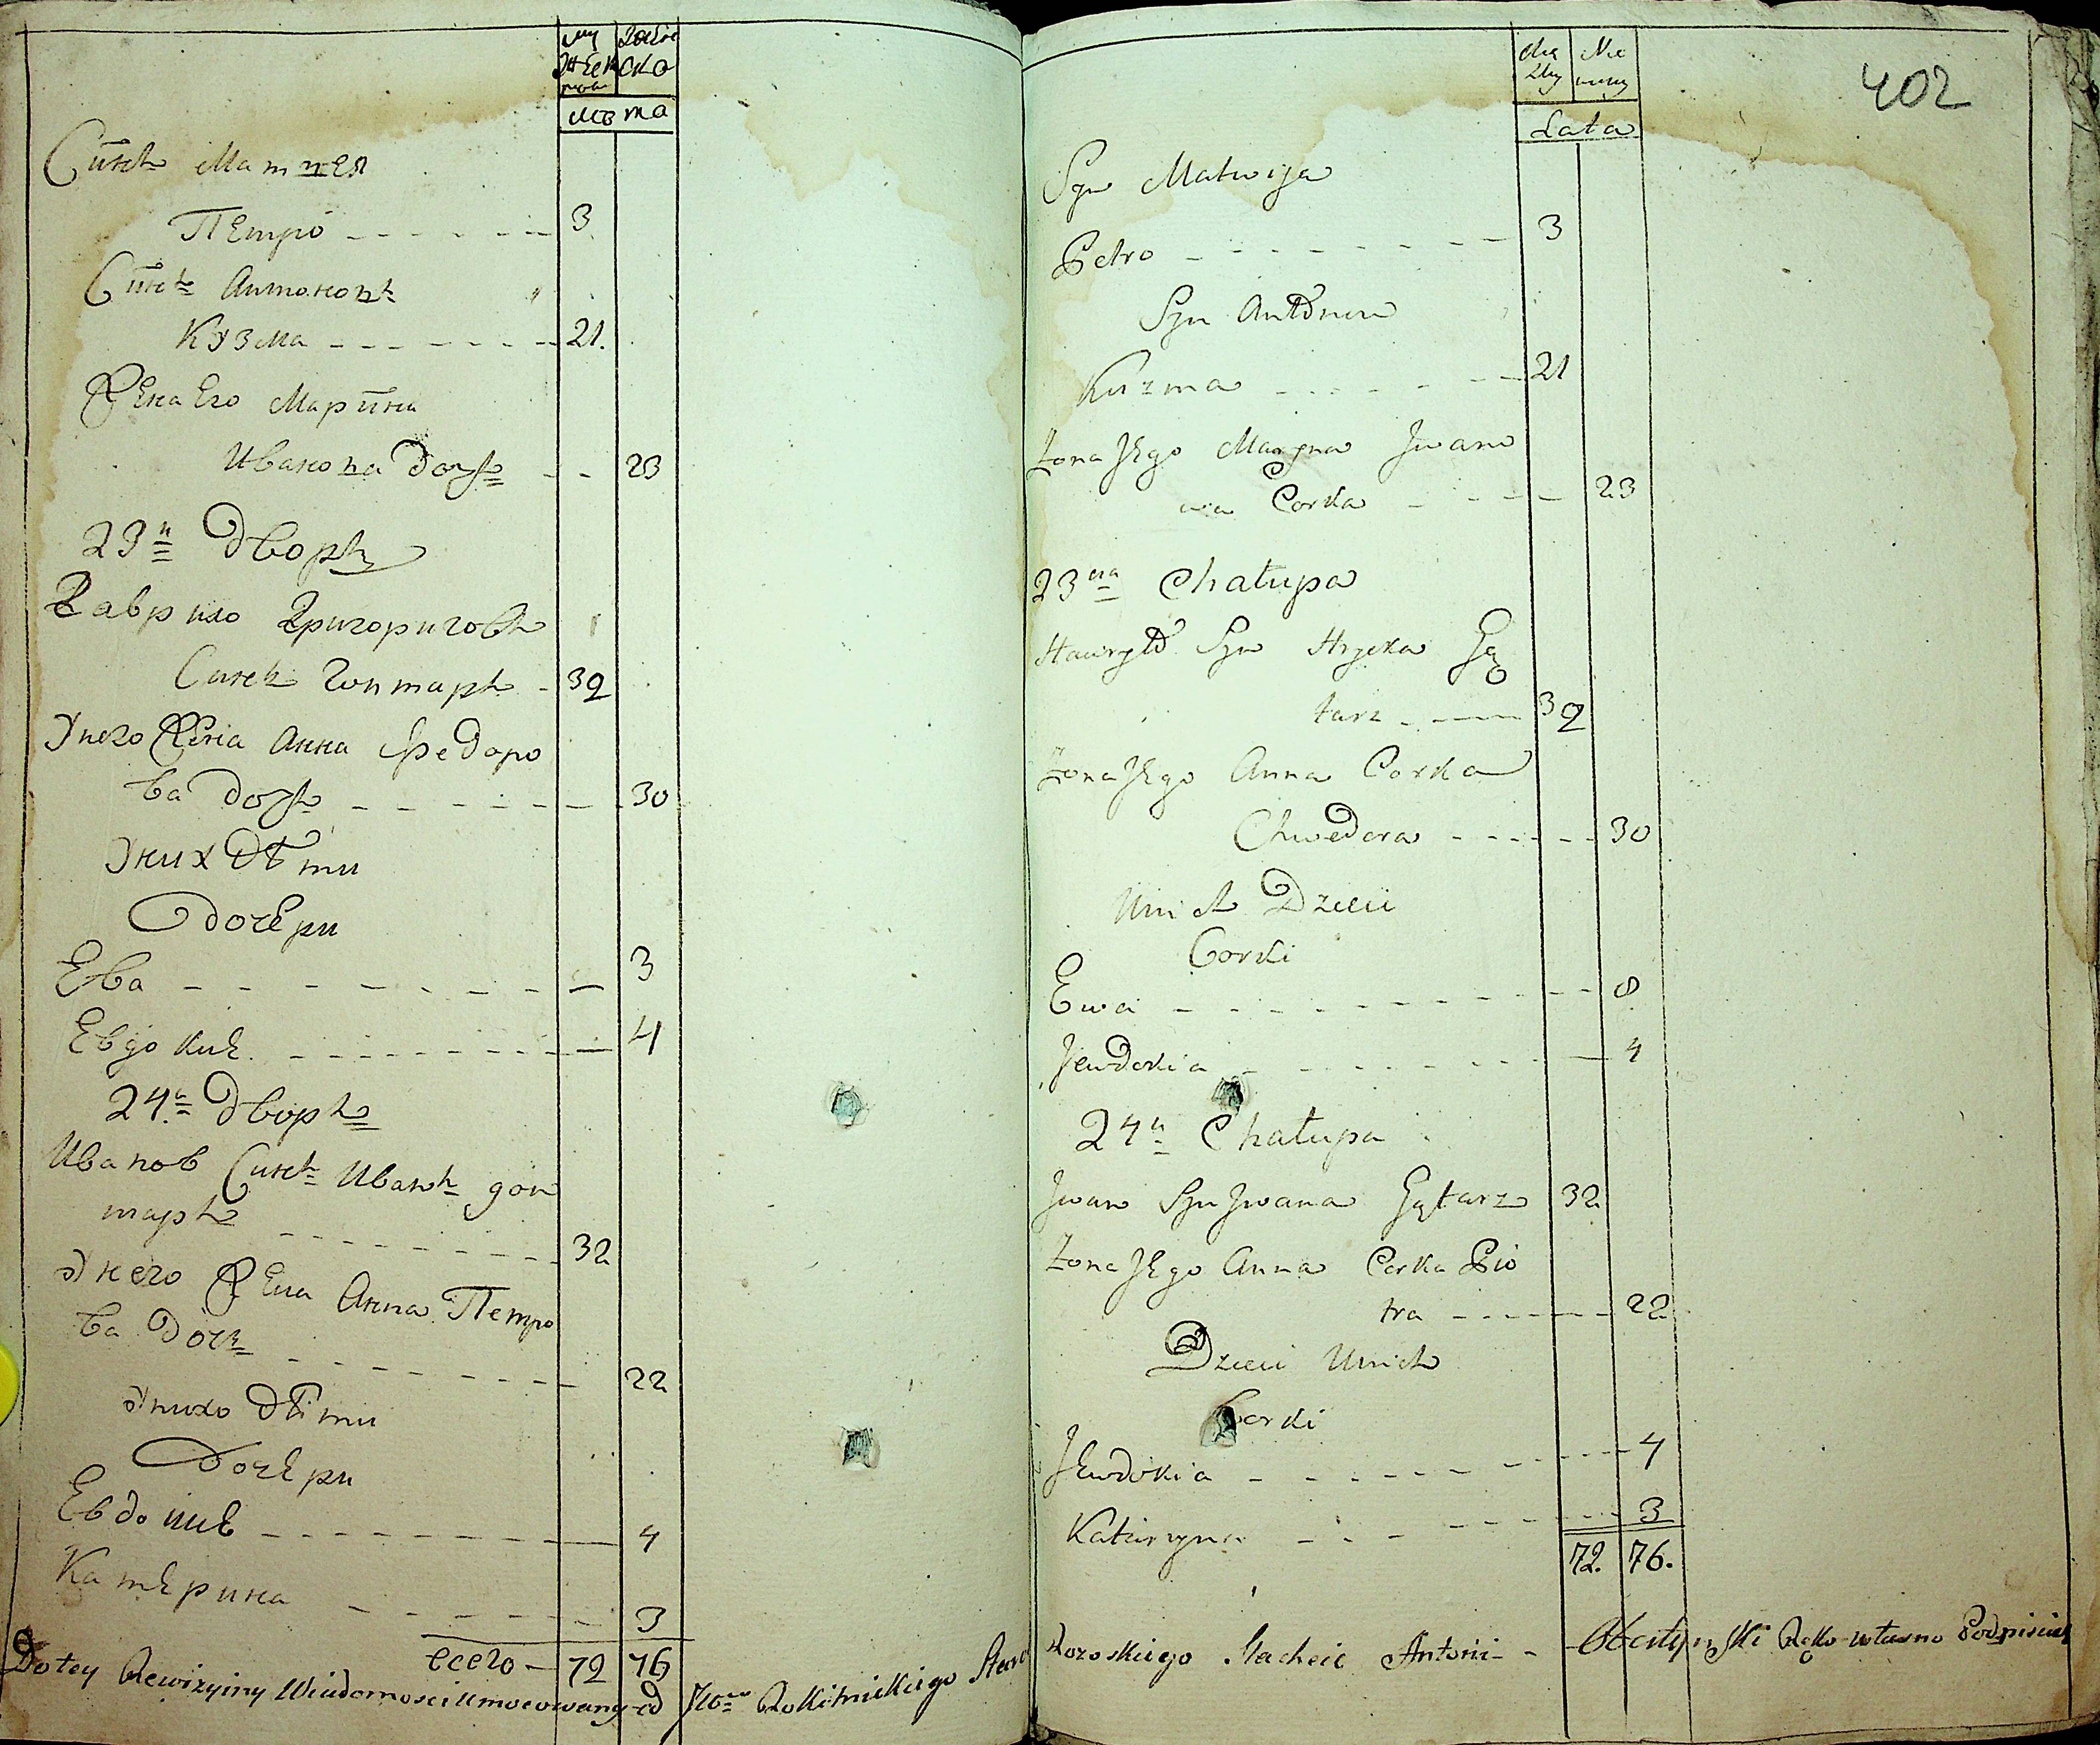 402
лѣта
Синъ Матвея
Петро 3
Синъ Антоновъ
Кузма 21.
Жена Его Марина
Иванова дочь 23
23й дворъ
Гаврило Григориговъ
Синъ гонтаръ 32
У него Жена Анна Федоро
ва дочь 30
У них дѣти
дочери
Ева 3
Евдокиѣ 4
24й дворъ
Иванов Синъ Иванъ гон
таръ 32
У него Жена Анна Петро
ва дочъ 22
У нихъ дѣти
дочери
Евдокиѣ 4
Катерина 3
всего 72 76
Lata
Syn Matwija
Petro 3
Syn Antonow
Kuzma 21
Żona Jego Maryna Iwano
wa Corka 23
23cia Chałupa
Hawryło Syn Hryćka Gą
tarz 32
Żona Jego Anna Corka
Chwedora 30
U nich Dzieci
Corki
Ewa 8
Jewdokia 4
24a Chałupa
Jwan Syn Jwana Gątarz 32
Żona Jego Anna Corka Pio
tra 22
Dzieci U nich
Corki
Jewdokia 4
Kataryna 3
72. 76.
Do tey Rewizyiny Wiadomosci umocowany od Rokitnickiego Staro Antoni Ręko własno Podpisuię